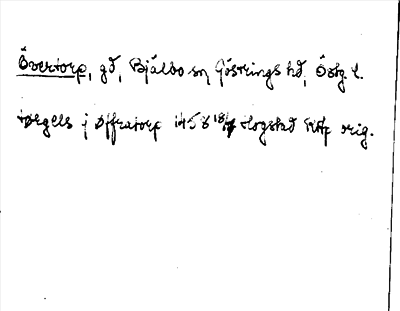 Övertorp, gd, Bjälbo sn, Göstrings hd, Östg. l.
törgels j Øffratorp 1458 18/7 Hogstad RAp orig.